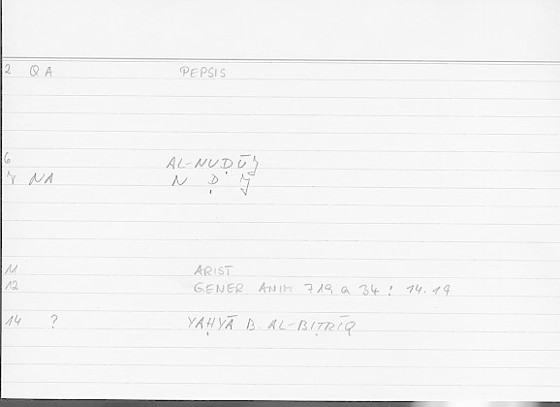 2 QA PEPSIS
6 AL-NUḌŪǦ
7 NA N Ḍ Ǧ
11 ARIST
12 GENER ANIM 719 a 34 : 14.19
14 ? YAḤYĀ B. AL-BIṬRĪQ